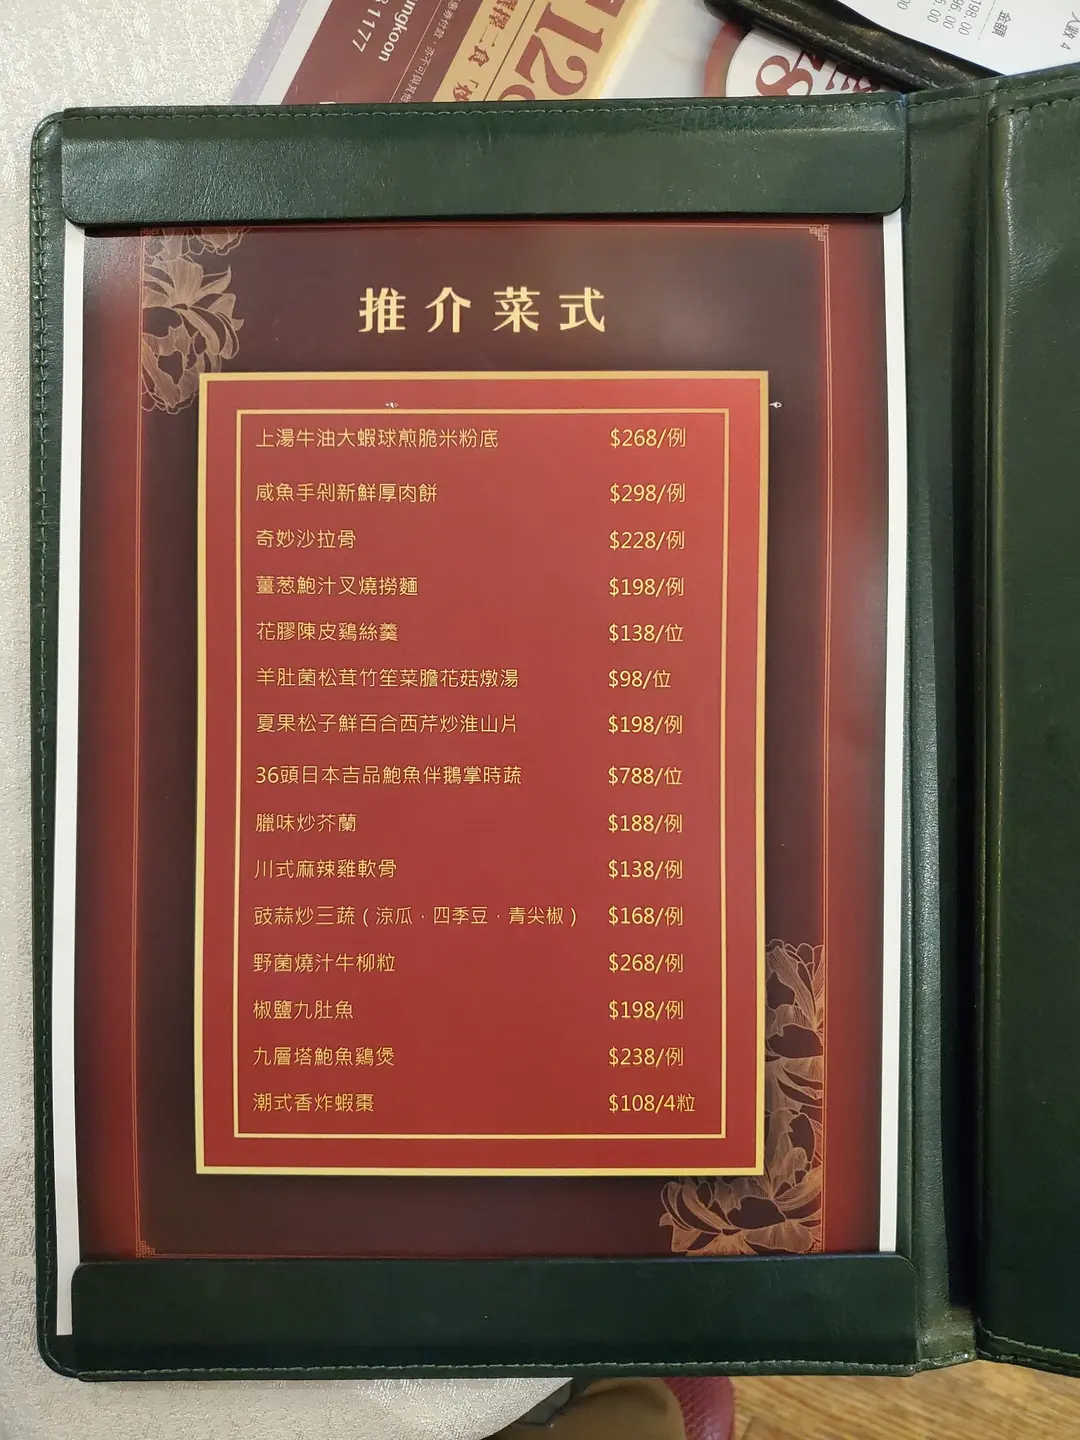 ungkoon
1177
金額
推介菜式
上湯牛油大蝦球煎脆米粉底 $268/例
咸魚手剁新鮮厚肉餅 $298/例
奇妙沙拉骨 $228/例
薑葱鮑汁叉燒撈麵 $198/例
花膠陳皮鷄絲羹 $138/位
羊肚菌松茸竹笙菜膽花菇燉湯 $98/位
夏果松子鮮百合西芹炒淮山片 $198/例
36頭日本吉品鮑魚伴鵝掌時蔬 $788/位
臘味炒芥蘭 $188/例
川式麻辣雞軟骨 $138/例
豉蒜炒三蔬（涼瓜．四季豆．青尖椒） $168/例
野菌燒汁牛柳粒 $268/例
椒鹽九肚魚 $198/例
九層塔鮑魚鷄煲 $238/例
潮式香炸蝦棗 $108/4粒